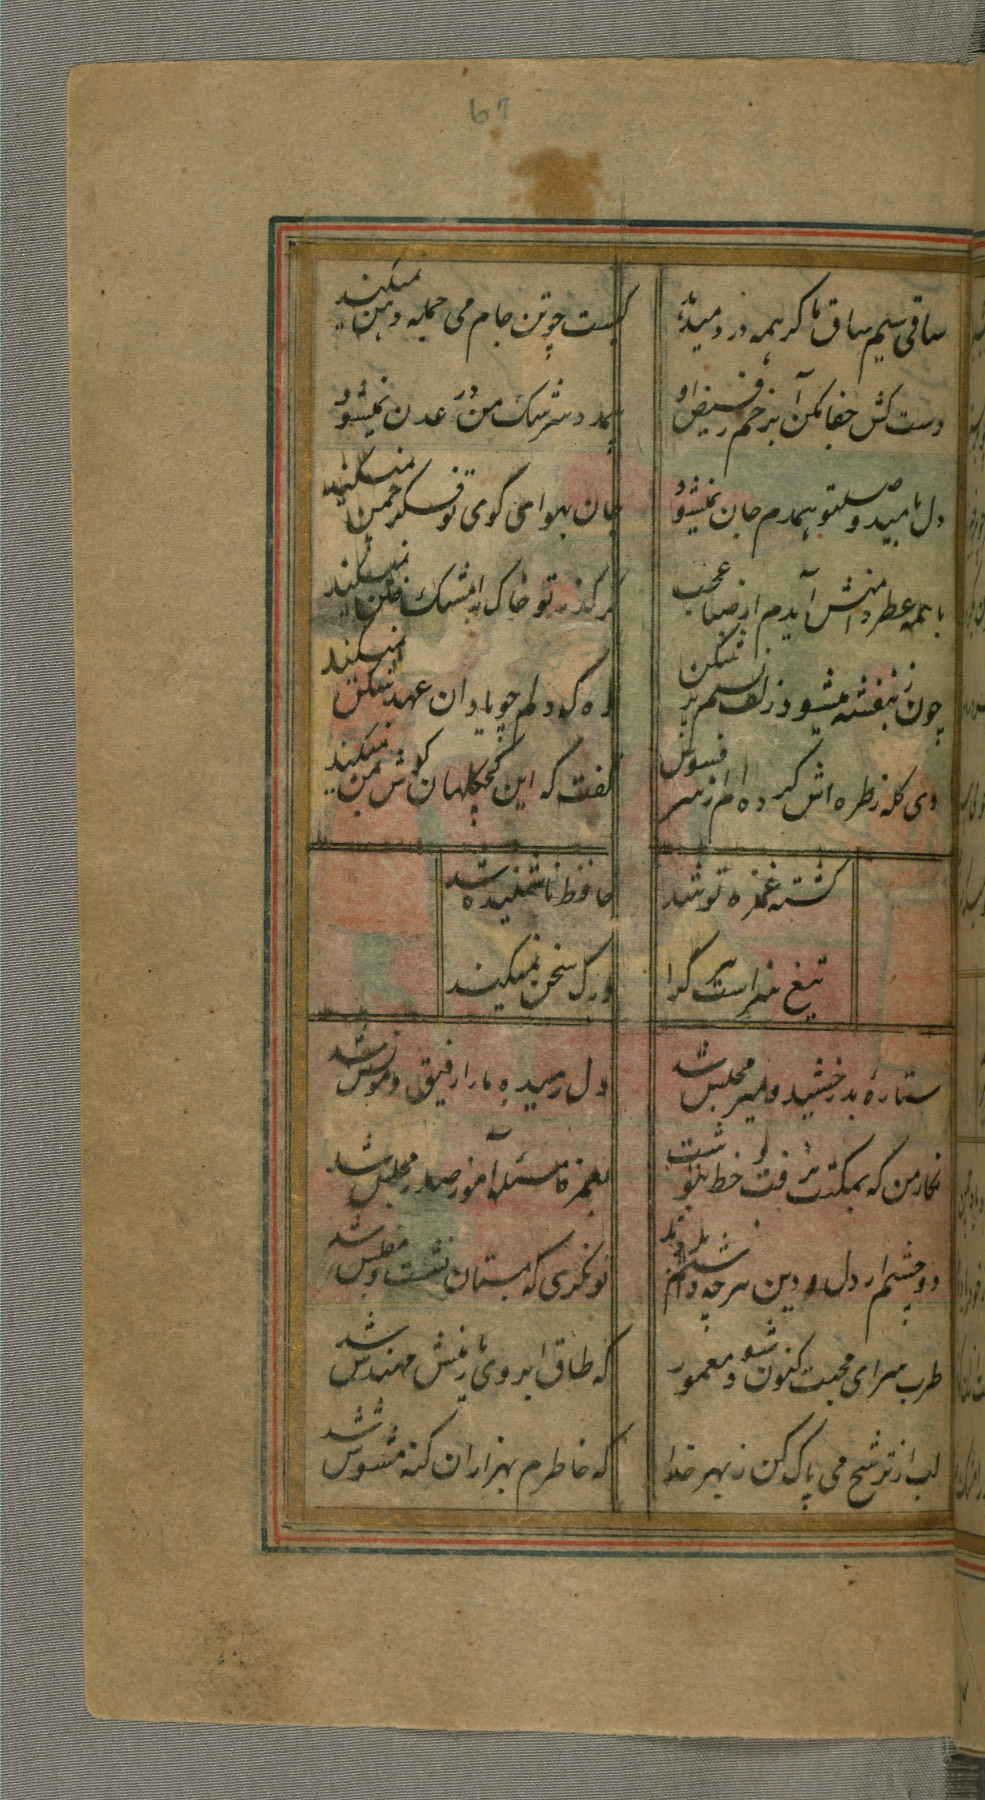 67
ساقی سیم ساق ما گر همه درد میدهد کیست چو تن جام می جمله دهن نمیکند
دست کش جفا مکن آبرخم ز فیض او در عدن نمیشود
دل بامید وصل تو همدم جان نمیشود جان بهوای کوی تو نمیکند
با همه عطر دامنش آیدم از صبا عجب کز گذر تو خاک را مشک ختن نمیکند
چون ز بنفشه میشود زلف شکن وه که دلم چو یاد ازان عهد شکن نمیکند
دی گله ز طره اش کرده ام از سر فسوس گفت که این کج گوش بمن نمیکند
کشته غمزه تو شد حافظ ناشنیده پند
تیغ سزاست هر کرا درک سخن نمیکند
ستاره بدرخشید و مجلس شد دل رمیده ما را رفیق و مونس شد
نگار من که بمکتب نرفت و خط ننوشت بغمزه مسئله آموز صد مدرس شد
که مستان نشست و مفلس شد
طرب سرای محبت کنون شود معمور که طاق ابروی یار منش مهندس شد
لب از ترشح می پاک کن ز بهر خدا که خاطرم بهزاران گنه موسوس شد